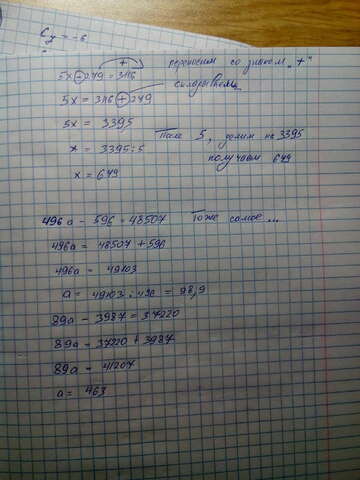 Cy = -6
5x - 279 = 3116 переносим со знаком „+"
5x = 3116 + 279 складываем
5x = 3395
x = 3395:5 После 5, делим на 3395
получаем 679
x = 679
496a - 596 = 48507 Тоже самое ...
496a = 48507 + 596
496a = 49103
a = 49103 : 496 = 98,9
89a - 3987 = 37220
89a = 37220 + 3987
89a = 41207
a = 463